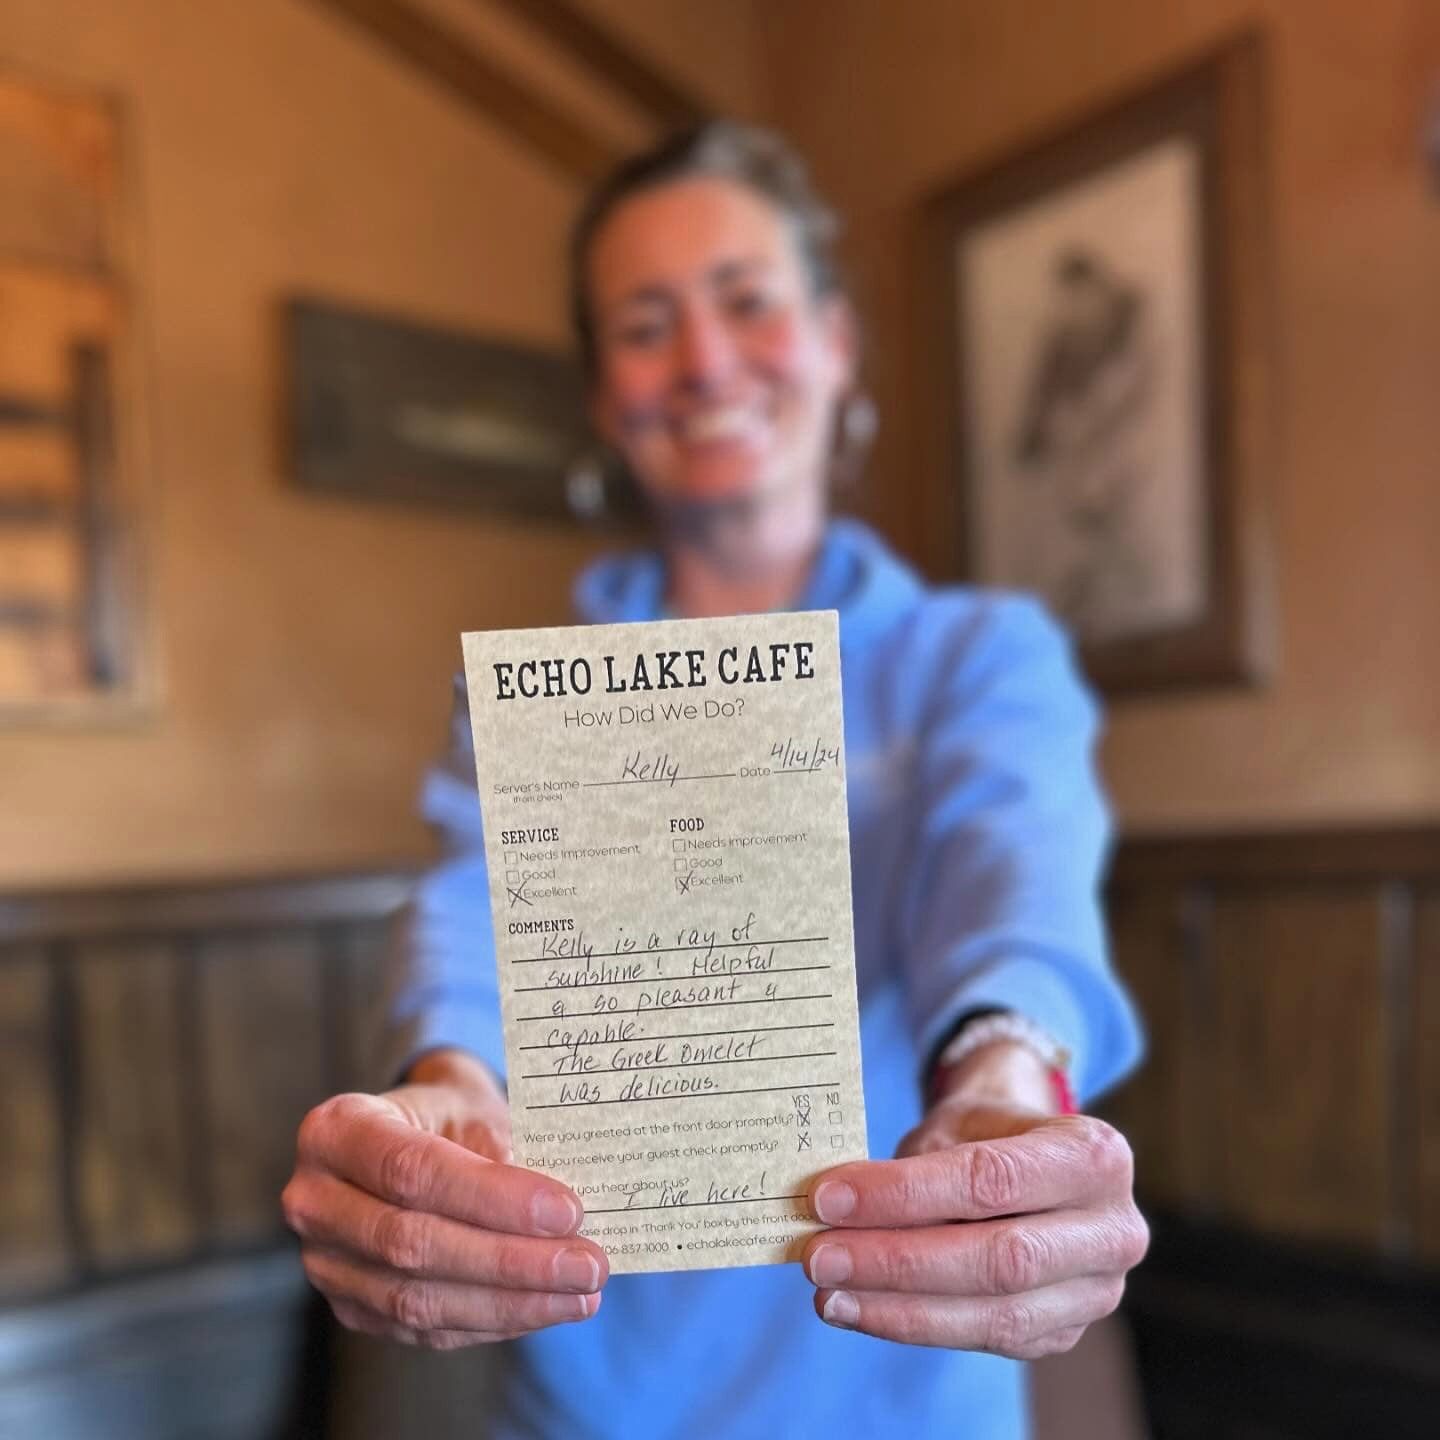 ECHO LAKE CAFE
How Did We Do?
Server's Name Kelly Date 4/14/24
(from check)
SERVICE FOOD
Needs Improvement Needs Improvement
Good Good
Excellent Excellent
COMMENTS
Kelly is a ray of
sunshine! Helpful
& so pleasant &
capable.
The Greek Omelet
was delicious.
YES NO
Were you greeted at the front door promptly?
Did you receive your guest check promptly?
you hear about us?
I live here!
drop in "Thank You" box by the front
06-837-1000 • echolakecafe.com